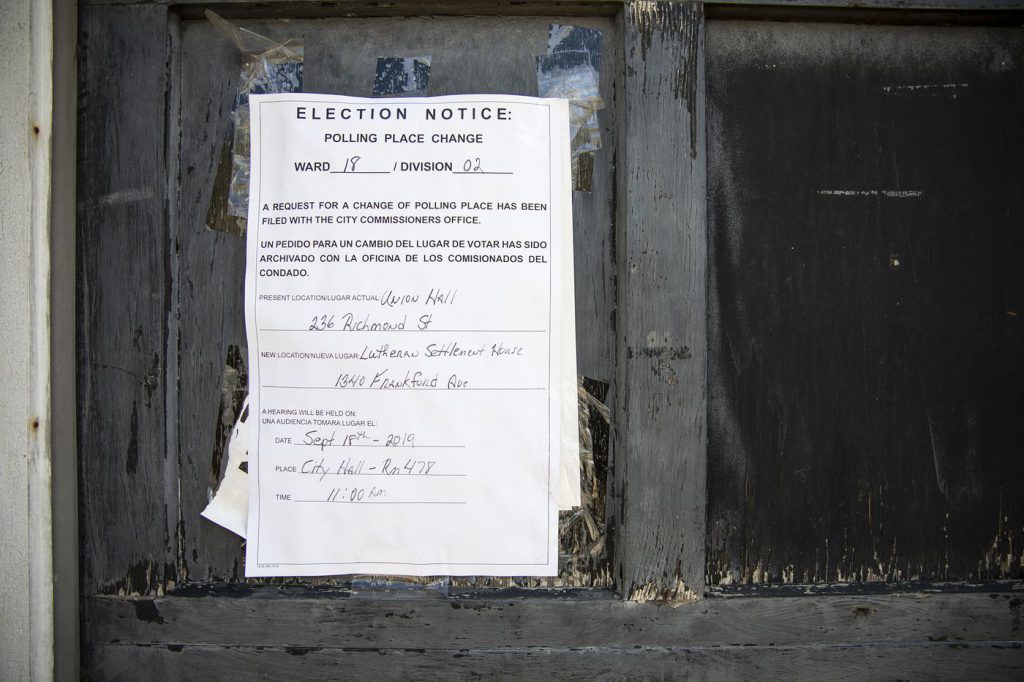 ELECTION NOTICE:
POLLING PLACE CHANGE
WARD 18 / DIVISION 02
A REQUEST FOR A CHANGE OF POLLING PLACE HAS BEEN
FILED WITH THE CITY COMMISSIONERS OFFICE.
UN PEDIDO PARA UN CAMBIO DEL LUGAR DE VOTAR HAS SIDO
ARCHIVADO CON LA OFICINA DE LOS COMISIONADOS DEL
CONDADO.
PRESENT LOCATION/LUGAR ACTUAL: Union Hall
236 Richmond St
NEW LOCATION/NUEVA LUGAR: Lutheran Settlement House
1340 Frankford Ave
A HEARING WILL BE HELD ON:
UNA AUDIENCIA TOMARA LUGAR EL:
DATE Sept 18th - 2019
PLACE City Hall - Rm 478
TIME 11:00 Am